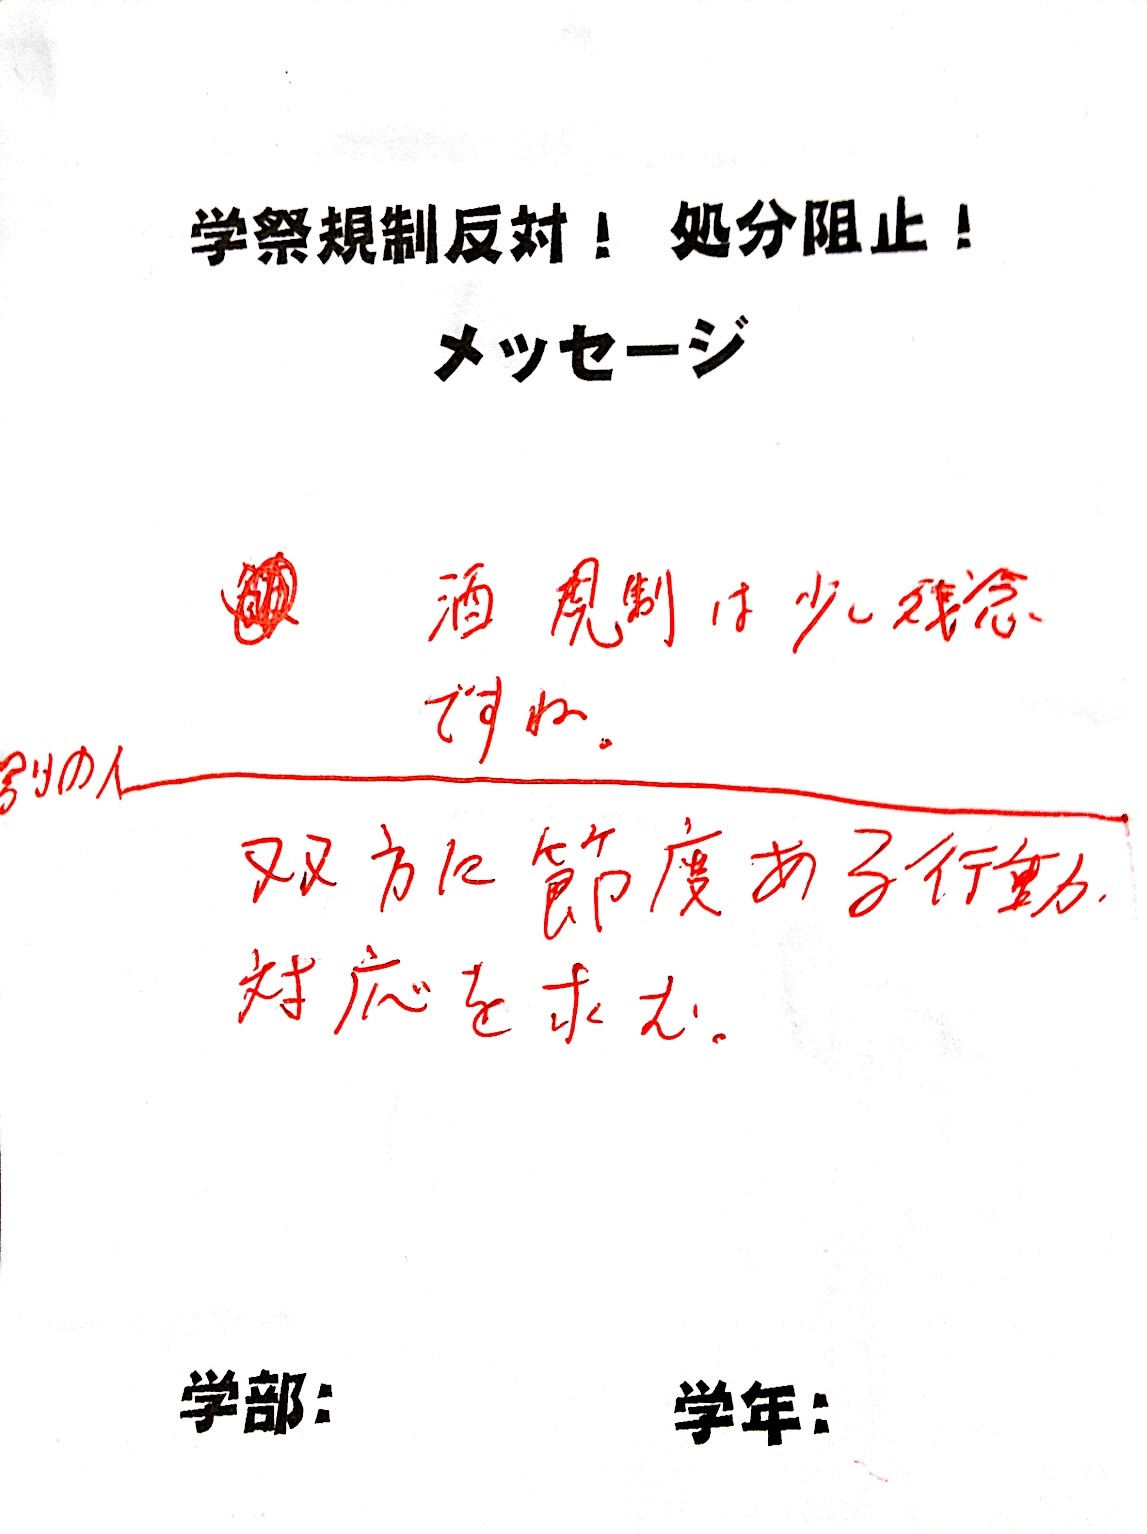 学祭規制反対！ 処分阻止！
メッセージ
酒 規制は少し残念
ですね。
別の人
双方に節度ある行動、
対応を求む。
学部： 学年：